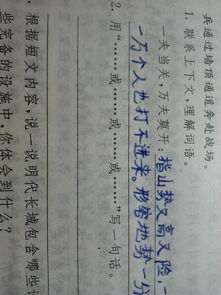 兵通过墙顶通道奔赴战场。
1. 联系上下文，理解词语。
一夫当关，万夫莫开：指山势又高又险，一
万个人也打不进来。形容地势一分
2. 用“……或……或……或……”写一句话。
根据短文内容，说一说明代长城包含哪些
些完备的设施中，你体会到什么？